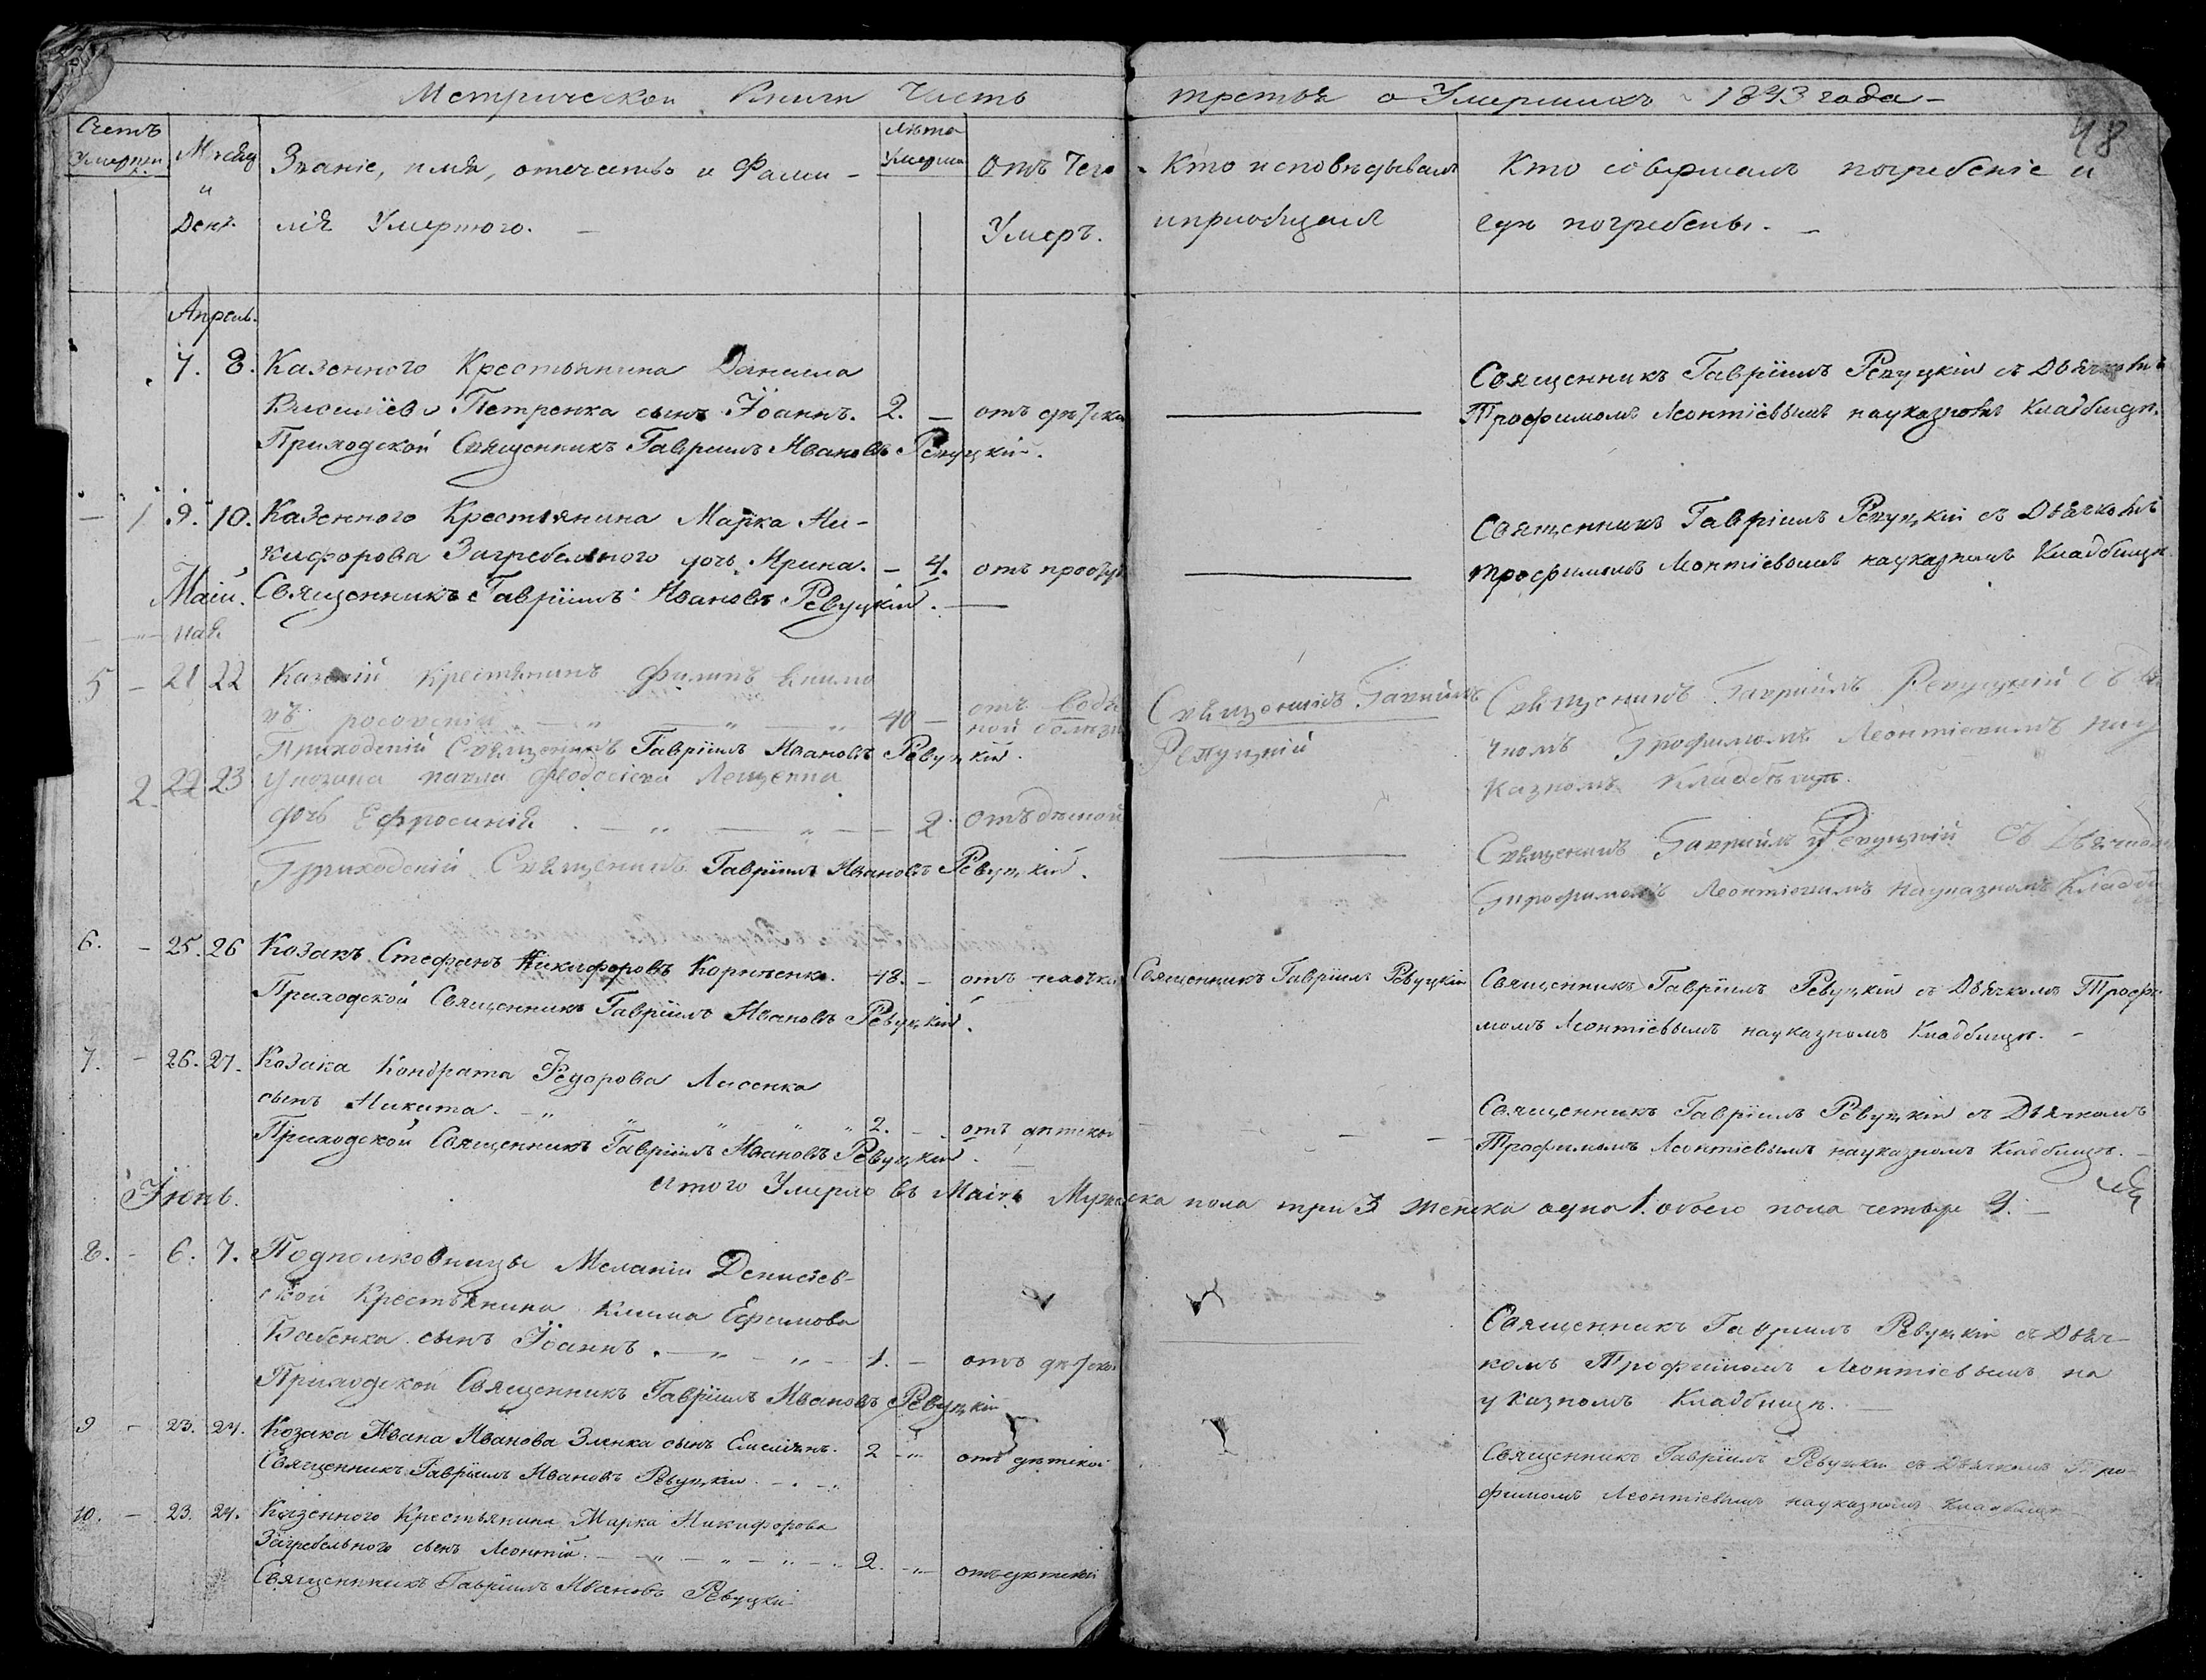 Метрической Книги Часть третья о Умершихъ 1843 года
48
Счетъ Умершихъ
Мѣсяц и День
Званіе, имя, отечество и Фами-
лія Умершого.
Лѣта Умерша
Отъ Чего
Умеръ.
Кто исповѣдывалъ
и приобщалъ
Кто совершалъ погребеніе и
гдѣ погребены.
Апрель.
7. 8. Казенного Крестьянина Данила
Василіева Петренка сынъ Іоаннъ. 2. — отъ дѣтско
Приходской Священникъ Гавріилъ Ивановъ Ревуцкій.
Священникъ Гавріилъ Ревуцкій съ Дьячкомъ
Трофимомъ Леонтіевымъ на указномъ Кладбищѣ.
— 1 9. 10. Казенного Крестьянина Марка Ни-
кифорова Загребельного дочь Ирина. — 4. отъ простуд
Священникъ Гавріилъ Ивановъ Ревуцкій.
Священникъ Гавріилъ Ревуцкій съ Дьячкомъ
Трофимомъ Леонтіевымъ на указномъ Кладбищѣ
Маій.
мая
5 — 21 22 Казеній Крестянинъ Филипъ
40 — отъ водя
ной болезн
Приходскій Священникъ Гавріилъ Ивановъ Ревуцкій.
Священикъ Гавриилъ
Ревуцкій
Священикъ Гавриилъ Ревуцкій съ Дья
чкомъ Трофимомъ Леонтіевимъ на у
казномъ Кладбѣщѣ.
2. 22 23 Указака Павла Феодосіева Лещенка
дочь Ефросинія — — 2 отъ дѣтской
Приходскій Священикъ Гавріилъ Ивановъ Ревуцкій.
Священикъ Гавриилъ Ревуцкій съ Дьячкомъ
Трофимомъ Леонтіевимъ на указномъ Кладби
6. — 25. 26 Козакъ Стефанъ Никифоровъ Корнѣенко. 48. —
Приходской Священникъ Гавріилъ Ивановъ Ревуцкій.
Священникъ Гавріилъ Ревуцкій
Священникъ Гавріилъ Ревуцкій съ Дьячкомъ Трофи
момъ Леонтіевымъ на указномъ Кладбищѣ. —
7. — 26. 27. Козака Кондрата Федорова Лисенка
сынъ Никита. — „ „ „ „ 2. — отъ дѣтской
Приходской Священникъ Гавріилъ Ивановъ Ревуцкій.
Священникъ Гавріилъ Ревуцкій съ Дьячкомъ
Трофимомъ Леонтіевымъ на указномъ Кладбищѣ. —
итого Умерло въ Маіѣ Мужеска пола три 3 женска одна 1. обоего пола четыре 4. —
Іюнь.
8. — 6. 7. Подполковницы Меланіи Денисіев-
ской Крестьянина Клима Ефимова
Бабенка сынъ Іоаннъ. — „ — „ — 1. — отъ дѣтско
Приходской Священникъ Гавріилъ Ивановъ Ревуцкій
Священникъ Гавріилъ Ревуцкій съ Дьяч-
комъ Трофимомъ Леонтіевымъ на
указномъ Кладбищѣ. —
9 — 23. 24. Козака Ивана Иванова Зленка сынъ Емеліянъ. 2 — отъ дѣтской
Священникъ Гавріилъ Ивановъ Ревуцкій.
Священникъ Гавріилъ Ревуцкій съ Дьячкомъ Тро-
фимомъ Леонтіевымъ на указномъ Кладбищѣ
10. — 23. 24. Казенного Крестьянина Марка Никифорова
Загребельного сынъ Леонтій. — „ — „ — „ — 2. — отъ дѣтской
Священникъ Гавріилъ Ивановъ Ревуцкій